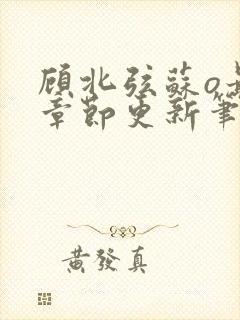 顾北弦蘇o
章節更新筆
黃發真